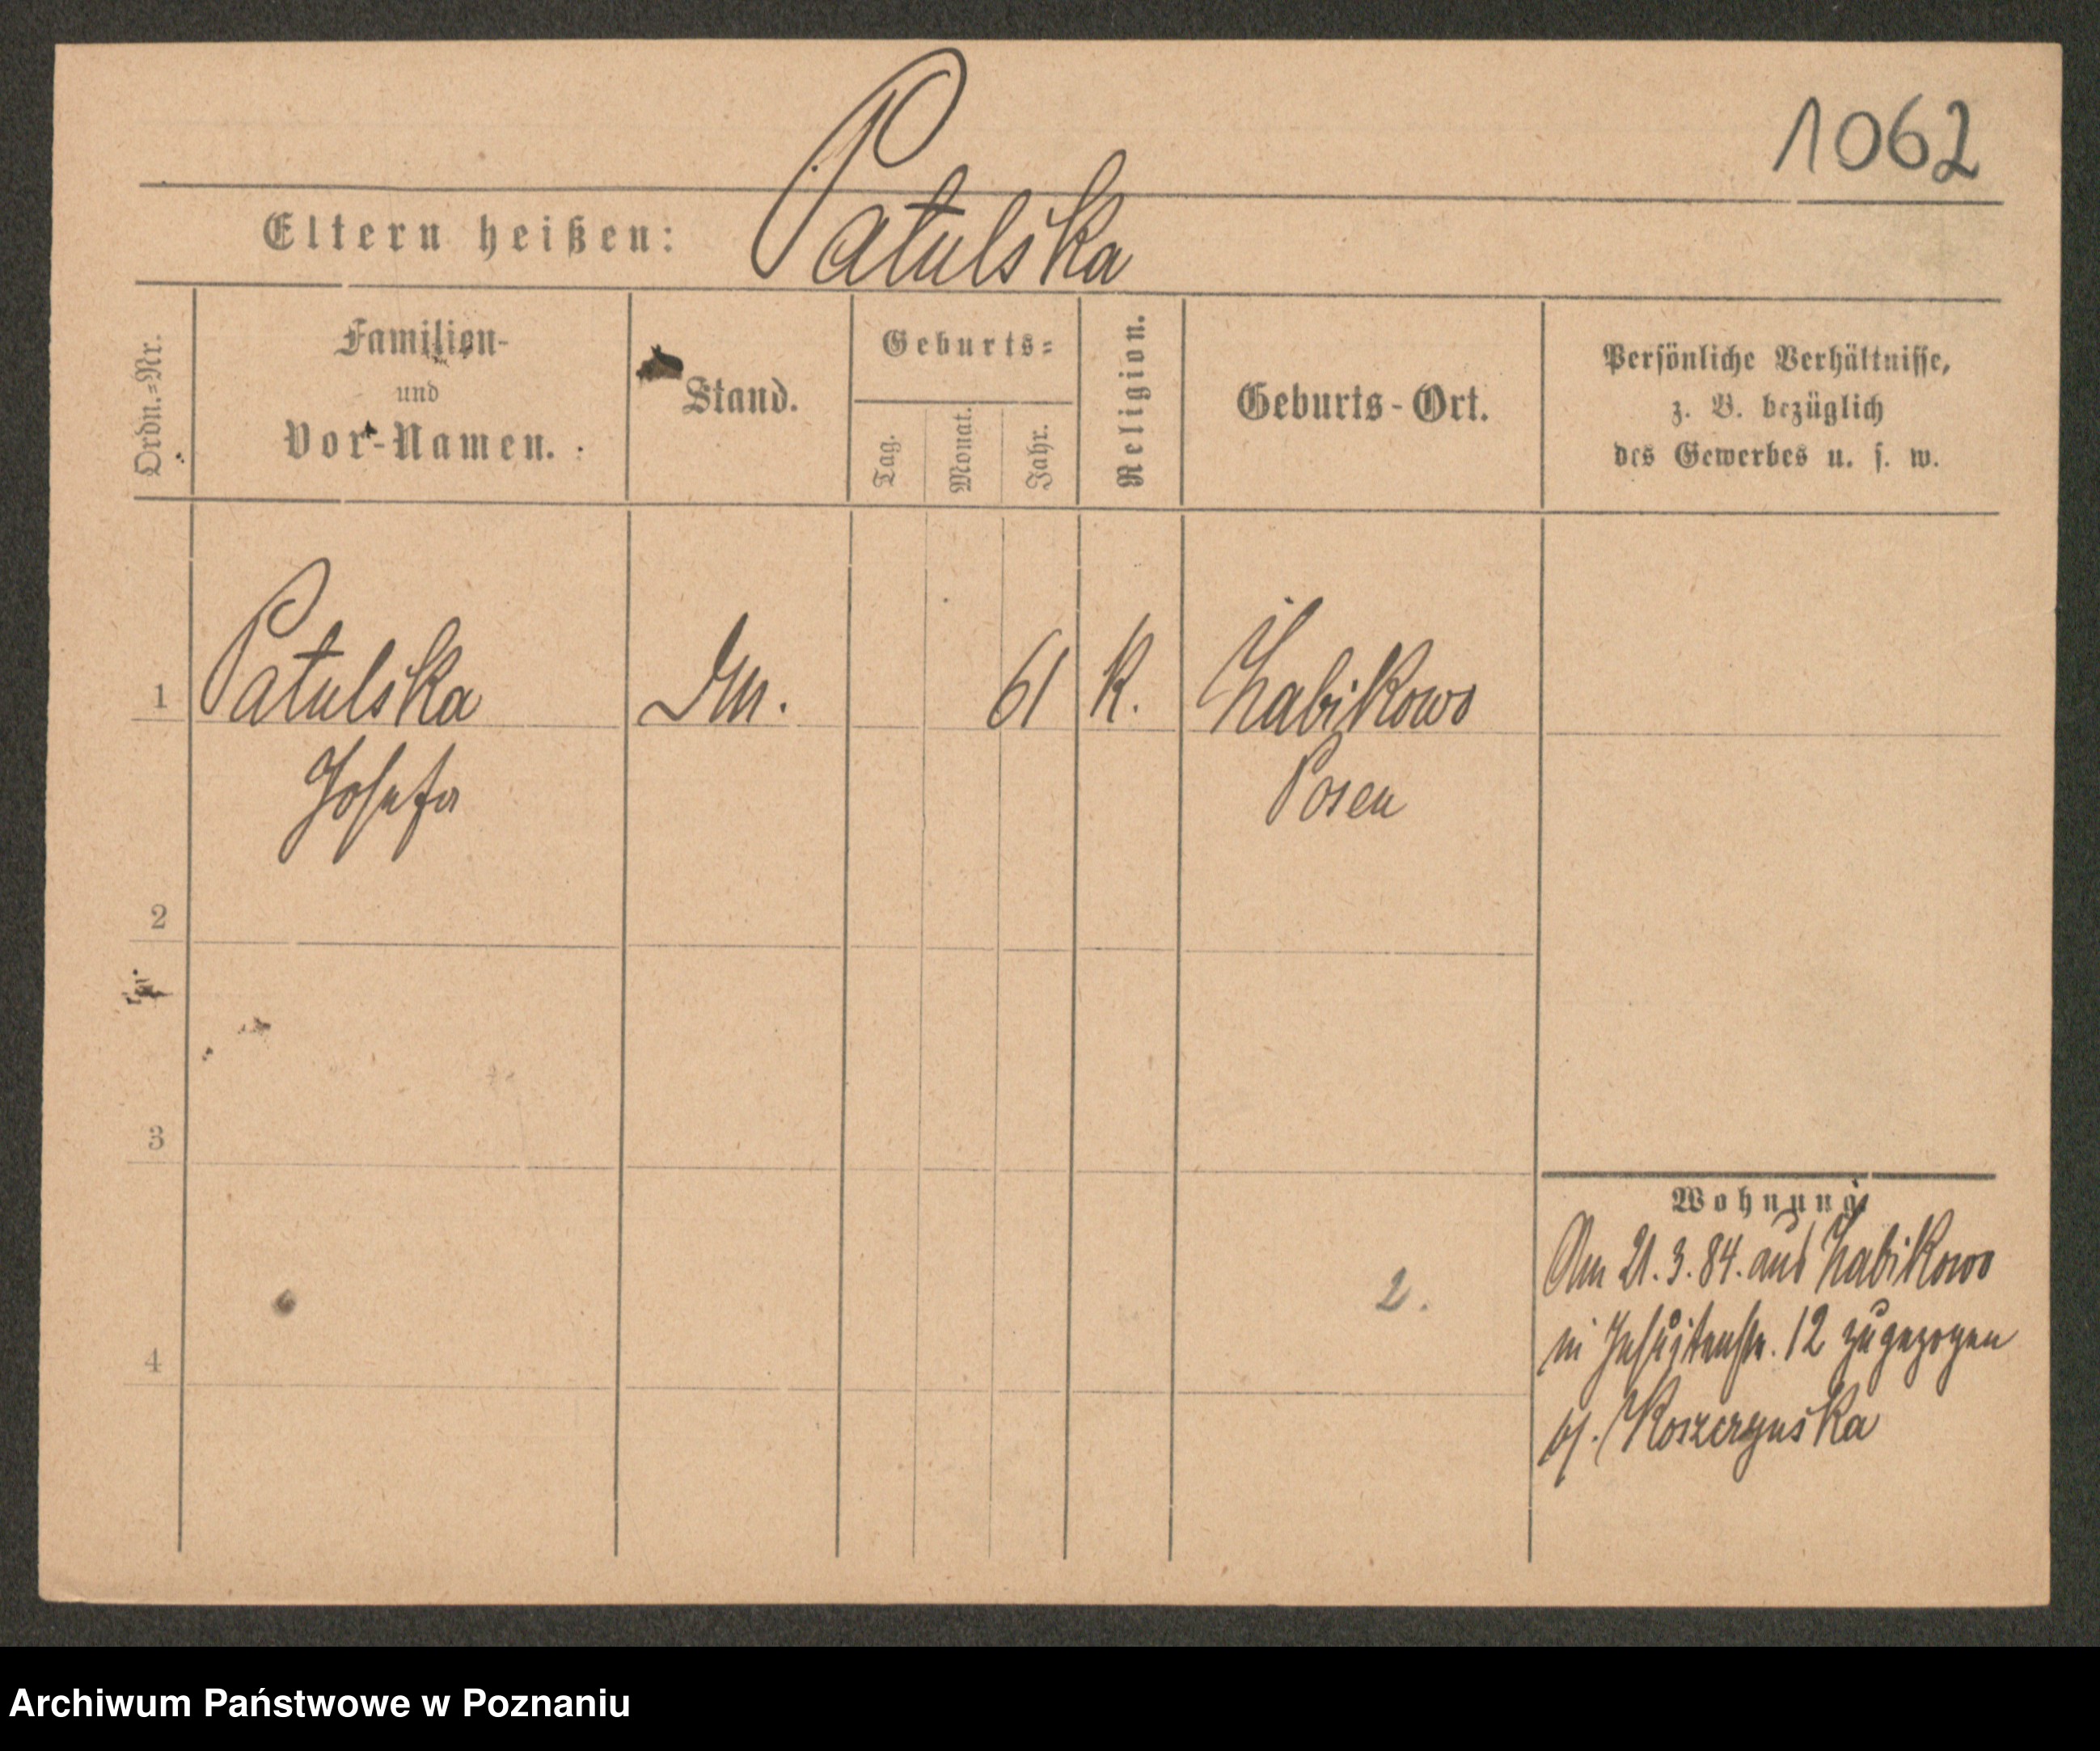 1062
Eltern heißen: Patulska
Ordn.=Nr.
Familien-
und
Vor-Namen.
Stand.
Geburts=
Tag.
Monat.
Jahr.
Religion.
Geburts-Ort.
Persönliche Verhältnisse,
z. B. bezüglich
des Gewerbes u. s. w.
1 Patulska 61 K. Żabikowo
Josefa Posen
2
3
Wohnung
Am 21.3.84. aus Żabikowo
in Jesuitenstr. 12 zugezogen
2.
4
Koszczynska
Archiwum Państwowe w Poznaniu